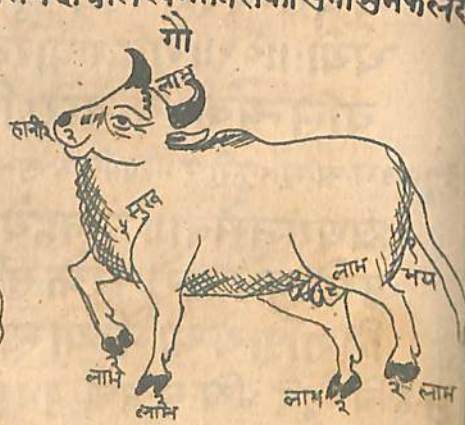 गौ
लाभ
हानि २
सुख
५
लाभ
भय
लाभ
लाभ
लाभ २
२ लाभ